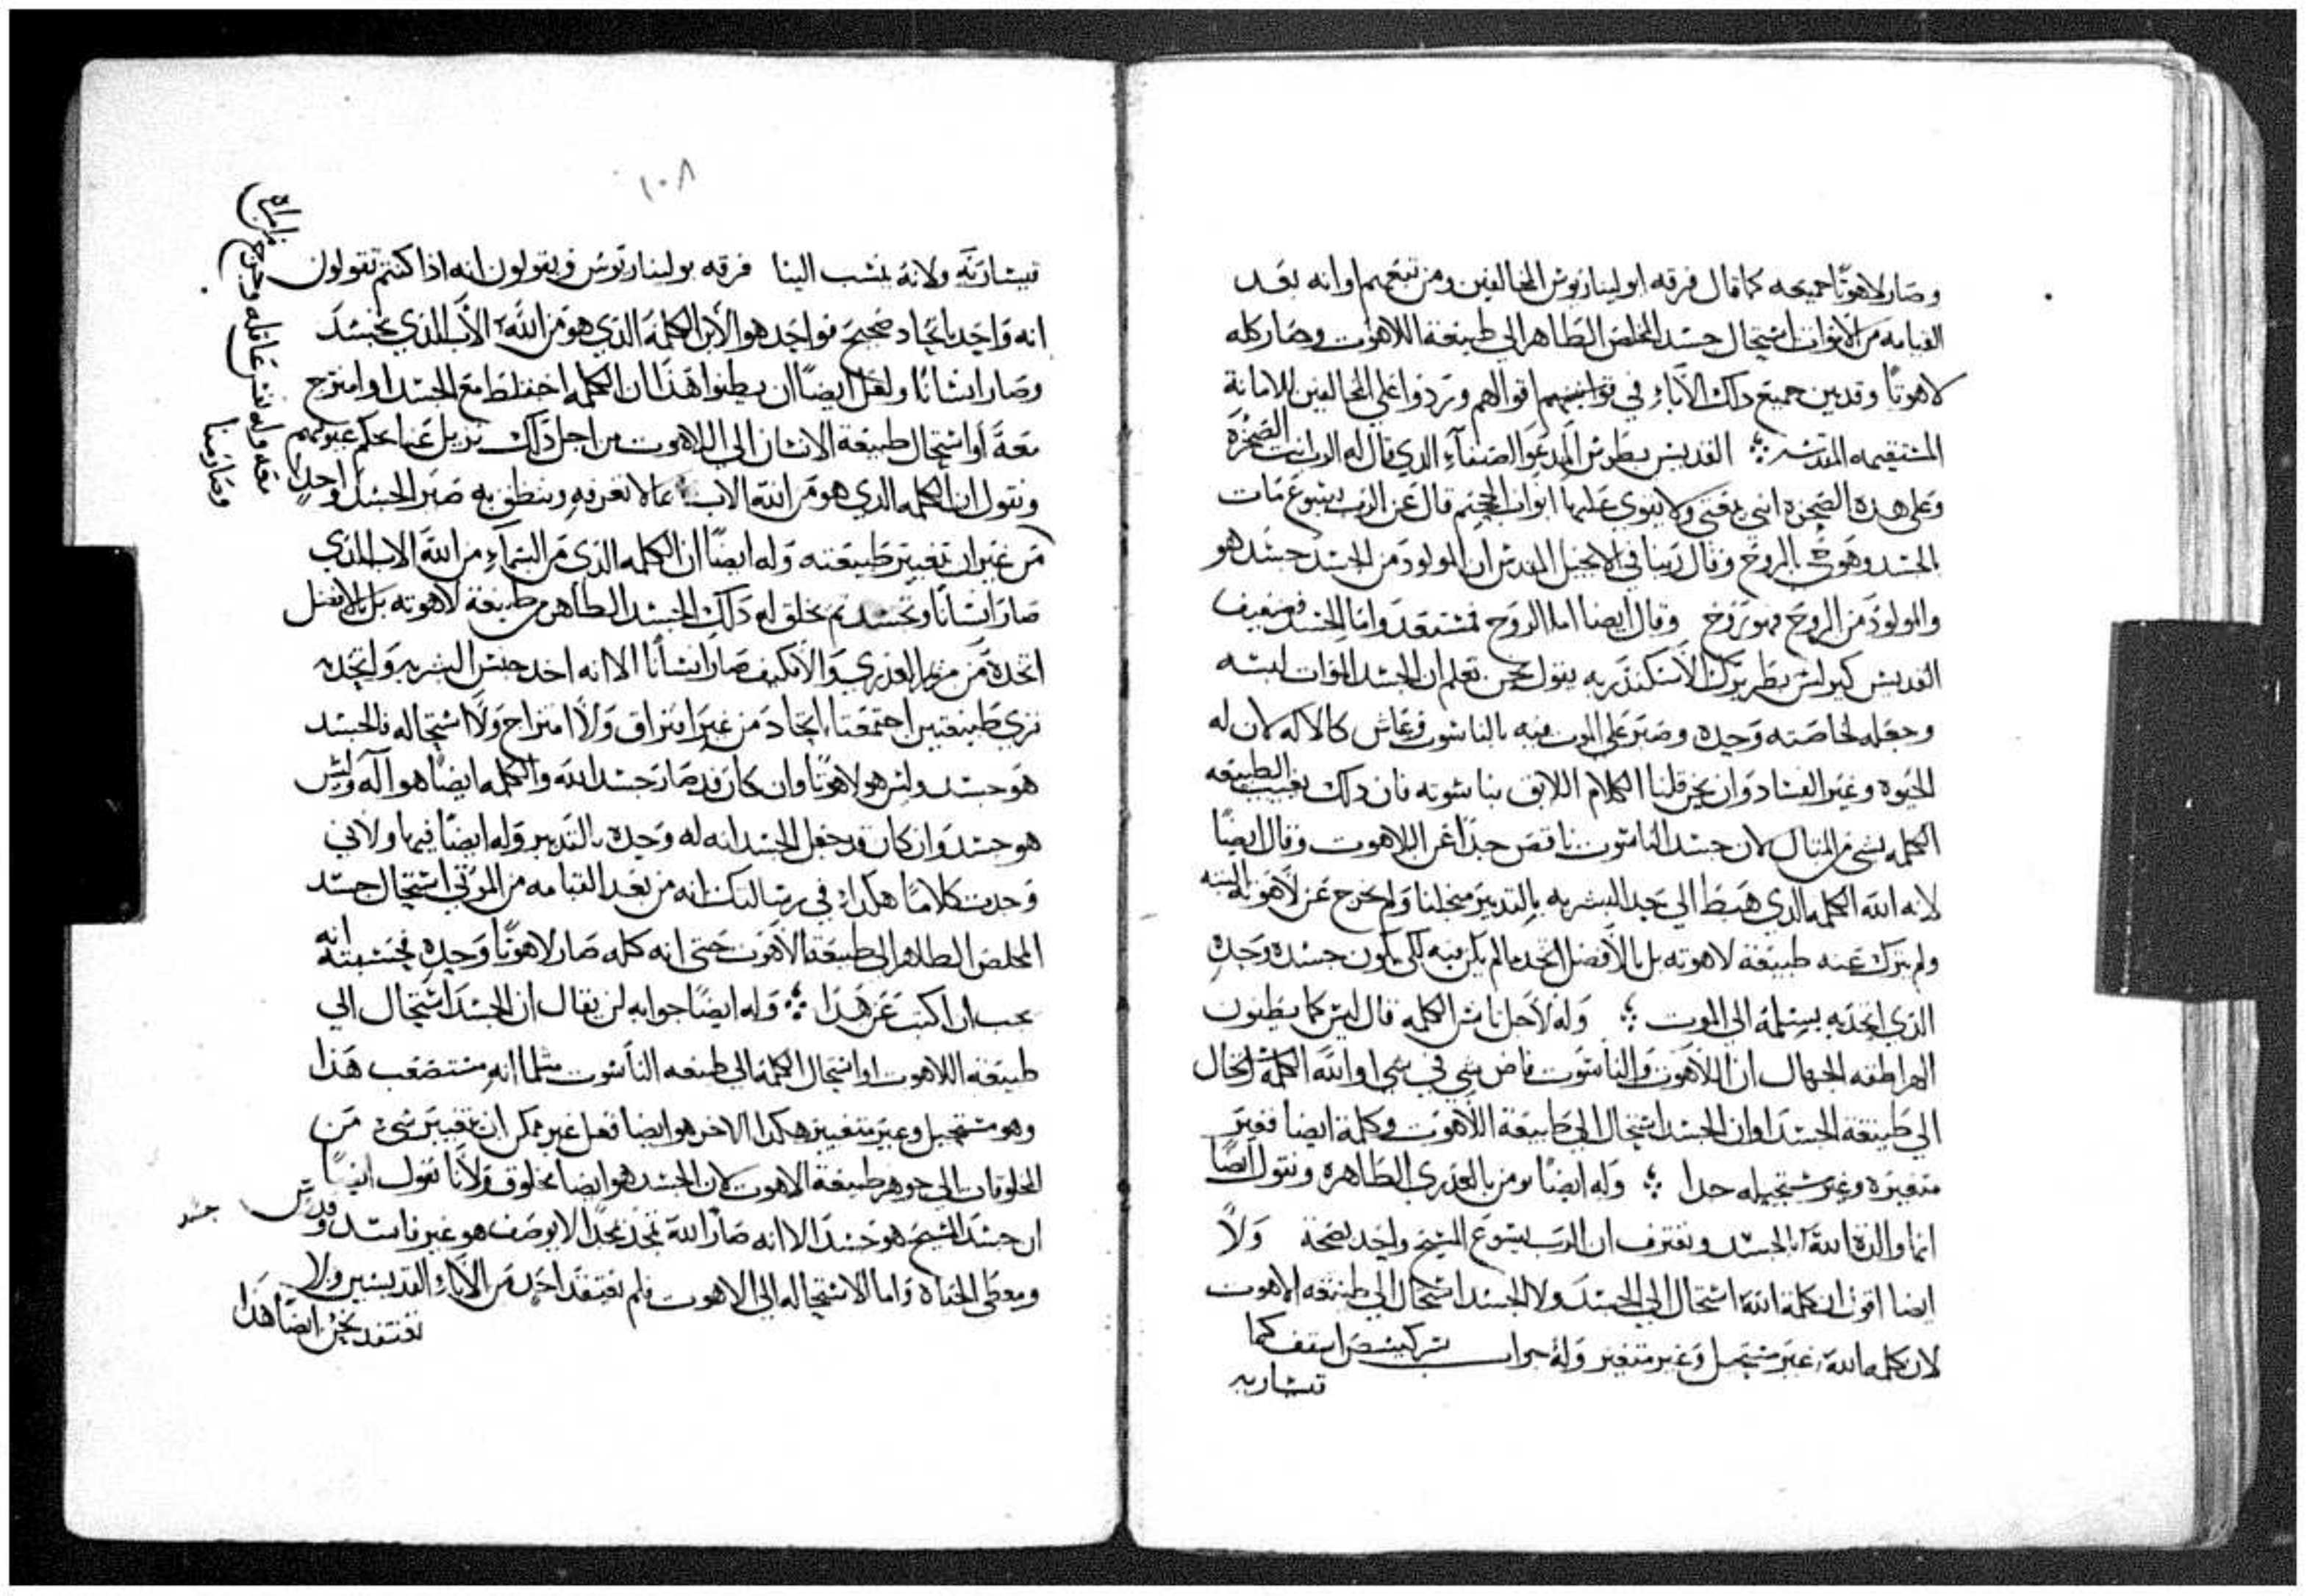 وصار لاهوتًا جميعه كما قال فرقه ابوليناريوس المخالفين ومن تبعهم او انه بعد
القيامه من الاموات استحال جسد المخلص الطاهر الى طبيعة اللاهوت وصار كله
لاهوتًا وقد بين جميع داك الآباء في اقوالهم وتردوا على المخالفين للامانة
المستقيمه المقدسه ؞ القديس بطرس المدعو الصفآء الدي قال له الرب انت الصخرة
وعلى هده الصخرة ابني بيعتي ولا يقوي عليها ابواب الجحيم قال عن الرب يسوع مات
بالجسد وهو حي بالروح وقال ربنا في الانجيل المقدس ان المولود من الجسد جسد هو
والمولود من الروح فهو روح وقال ايضا اما الروح فمستعد واما الجسد فضعيف
القديس كيرلس بطريرك الاسكندريه يقول نحن نعلم ان الجسد الموات لبسه
وجعله لخاصته وحده وصبر على الموت فيه بالناسوت وعاش كالاله لان له
الحيوه وغير الفساد وان نحن قلنا الكلام اللايق بناسوته فان داك بغيب الطبيعه
الكلمه بشي من المنال لان جسد الناسوت ناقص جدًا عن اللاهوت وقال ايضًا
لانه الله الكلمه الدي هبط الى حد البشريه بالتدبير من اجلنا ولم يخرج عن لاهوته البته
ولم يترك عنه طبيعة لاهوته بل بالافضل اتخد ما لم يكن فيه لكي يكون جسده وحده
الذي اتحد به يسلمه الى الموت ؞ وله لاجل تانس الكلمه قال ليس كما يظنون
الهراطقه الجهال ان اللاهوت والناسوت فاض شي في شي او الله الكلمة استحال
الى طبيعة الجسد او ان الجسد استحال الى طبيعة اللاهوت وكلمة ايضا فغير
متغيره وغير مستحيله جدا ؞ وله ايضًا نومن بالعدري الطاهرة ونقول ايضًا
انها والدة الله بالجسد ونعترف ان الرب يسوع المسيح واحد بصحة ولا
ايضا اقول ان كلمة الله استحال الى الجسد ولا الجسد استحال الى طبيعه اللاهوت
لان كلمه الله غير مستحيل وغير متغير وله جواب اسقف
قيساريه
١٠٨
قيسارية ولانة ينسب الينا فرقه بوليناريوس ويقولون انه اذا كنتم تقولون
انه واحد باتحاد صحيح فواحد هو الابن الكلمه الذي هو من الله الآب الذي تجسد
وصار انسانًا ولعل ايضًا ان يظنوا هذا ان الكلمه اختلط مع الجسد او امتزج
معة أو استحال طبيعة الانسان الى اللاهوت من اجل ذاك نزيل عنا
ونقول ان الكلمه الدي هو من الله الاب عما لا نعرفه وينطق به صير الجسد واحد
من غير ان تغيير طبيعته وله ايضًا ان الكلمه الذي من السمآء من الله الاب الذي
صار انسانًا وتجسد لم يخلق له ذلك الجسد الطاهر من طبيعة لاهوته بل بالافضل
اتخده من مريم العذري والا فكيف صار انسانًا الا انه اخد جنس البشريه واتحد به
نري طبيعتين اجتمعتا باتحاد من غير افتراق ولا امتزاج ولا استحاله فالجسد
هو جسد وليس هو لاهوتًا وان كان قد صار جسد الله والكلمه ايضًا هو آله وليس
هو جسد وان كان قد جعل الجسد انه له وحده بالتدبير وله ايضًا فيما ولاني
وجدت كلامًا هكدا في رسالتك انه من بعد القيامه من الموتي استحال جسد
المخلص الطاهر الى طبيعة الاهوت حتى انه كله صار لاهوتًا وحده فحسبته انه
يجب ان اكتب عن هدا ؞ وله ايضًا جوابه لن يقال ان الجسد استحال الى
طبيعة اللاهوت او استحال الكلمه الى طبيعه الناسوت مثلما انه مستصعب هذا
وهو مستحيل وغير متغيير هكدا الاخر هو ايضا فعل غير ممكن ان تغيير شي من
المخلوقات الى جوهر طبيعة الاهوت لان الجسد هو ايضا مخلوق ولانا نقول ايضًا
ان جسد المسيح هو جسد الا انه صار الله بمجد لا يوصف هو غير فاسد وقدس جسد
ومعطي الحياة واما الاستحاله الى الاهوت فلم يعتقد احد من الآباء القديسين ولا
نعتقد نحن ايضًا هذا
معه وله نفس عاقله وخرج من امراه
وصار منا